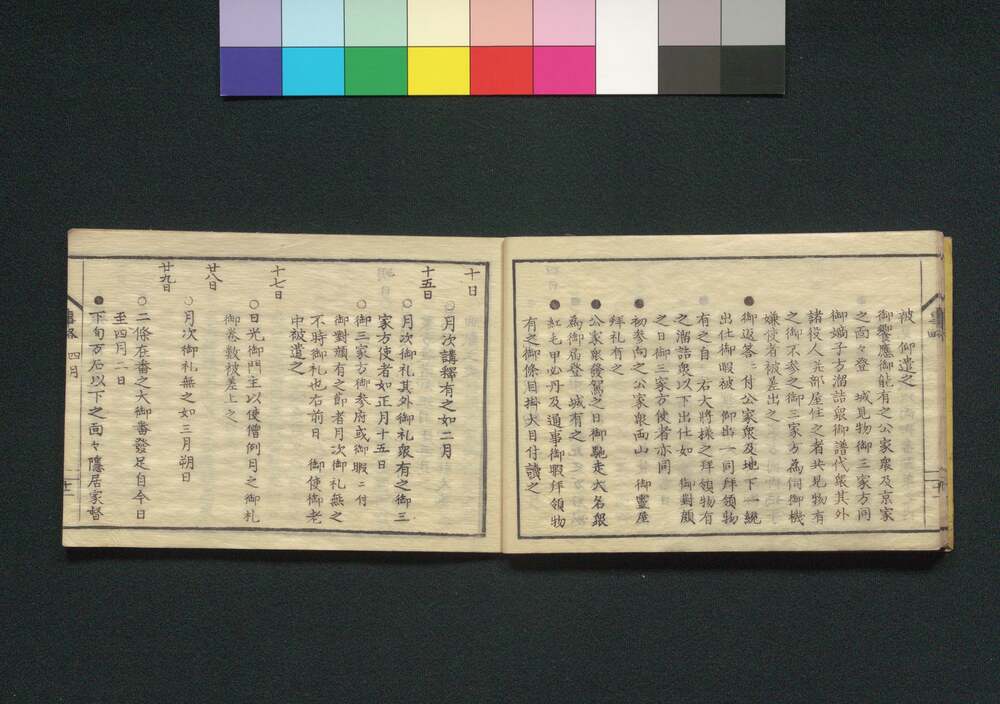 被　御遣之
御饗應御能有之公家衆及京家
之面々登　城見物御三家方同
御嫡子方溜詰衆御譜代衆其外
諸役人幷部屋住之者共見物有
之御不参之御三家方為伺御機
嫌使者被差出之
●御返答ニ付公家衆及地下一統
出仕御暇被　仰出一同拜領物
有之自　右大將樣之拜領物有
之溜詰衆以下出仕如　御對顔
之日御三家方使者亦同
●初参向之公家衆両山　御霊屋
拜礼有之
●公家衆發駕之日御馳走大名衆
為御届登　城有之
●紅毛甲必丹及通事御暇拜領物
有之御條目掛大目付讀之
十日
○月次講釋有之如二月
十五日
○月次御礼其外御礼衆有之御三
家方使者如正月十五日
○御三家方御参府或御暇ニ付
御對顔有之節者月次御礼無之
不時御礼也右前日　御使御老
中被遣之
十七日
○日光御門主以使僧例月之御札
御巻数被差上之
廿八日
○月次御礼無之如三月朔日
廿九日
○二條在番之大御番發足自今日
至四月二日
●下旬万石以下之面々隱居家督
四月